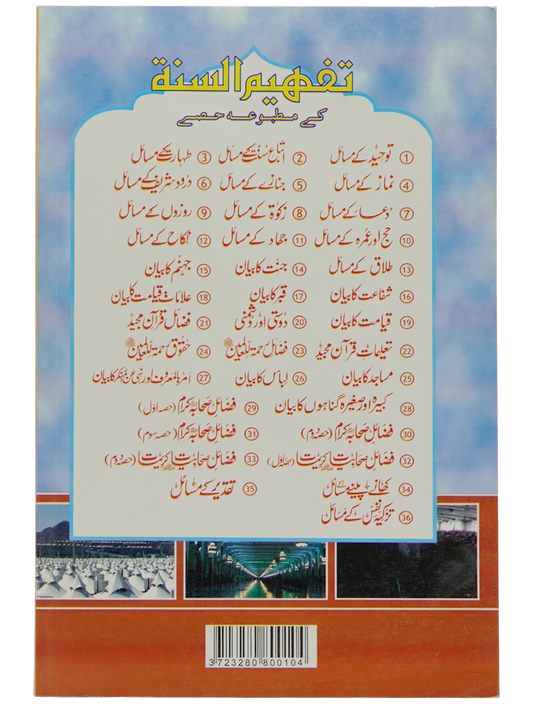 تفہیم السنۃ
کے مطبوعہ حصے
① توحید کے مسائل ② اتباع سنت کے مسائل ③ طہارت کے مسائل
④ نماز کے مسائل ⑤ جنازے کے مسائل ⑥ درود شریف کے مسائل
⑦ دعا کے مسائل ⑧ زکوٰۃ کے مسائل ⑨ روزوں کے مسائل
⑩ حج اور عمرہ کے مسائل ⑪ جہاد کے مسائل ⑫ نکاح کے مسائل
⑬ طلاق کے مسائل ⑭ جنت کا بیان ⑮ جہنم کا بیان
⑯ شفاعت کا بیان ⑰ قبر کا بیان ⑱ علامات قیامت کا بیان
⑲ قیامت کا بیان ⑳ دوستی اور دشمنی ㉑ فضائل قرآن مجید
㉒ تعلیمات قرآن مجید ㉓ فضائل رحمۃ للعالمین ﷺ ㉔ حقوق رحمۃ للعالمین ﷺ
㉕ مساجد کا بیان ㉖ لباس کا بیان ㉗ امر بالمعروف اور نہی عن المنکر کا بیان
㉘ کبیرہ اور صغیرہ گناہوں کا بیان ㉙ فضائل صحابہ کرام (حصہ اول)
㉚ فضائل صحابہ کرام (حصہ دوم) ㉛ فضائل صحابہ کرام (حصہ سوم)
㉜ فضائل صحابیات (حصہ اول) ㉝ فضائل صحابیات (حصہ دوم)
㉞ کھانے پینے کے مسائل ㉟ تقدیر کے مسائل
㊱ تزکیہ نفس کے مسائل
3723280800104